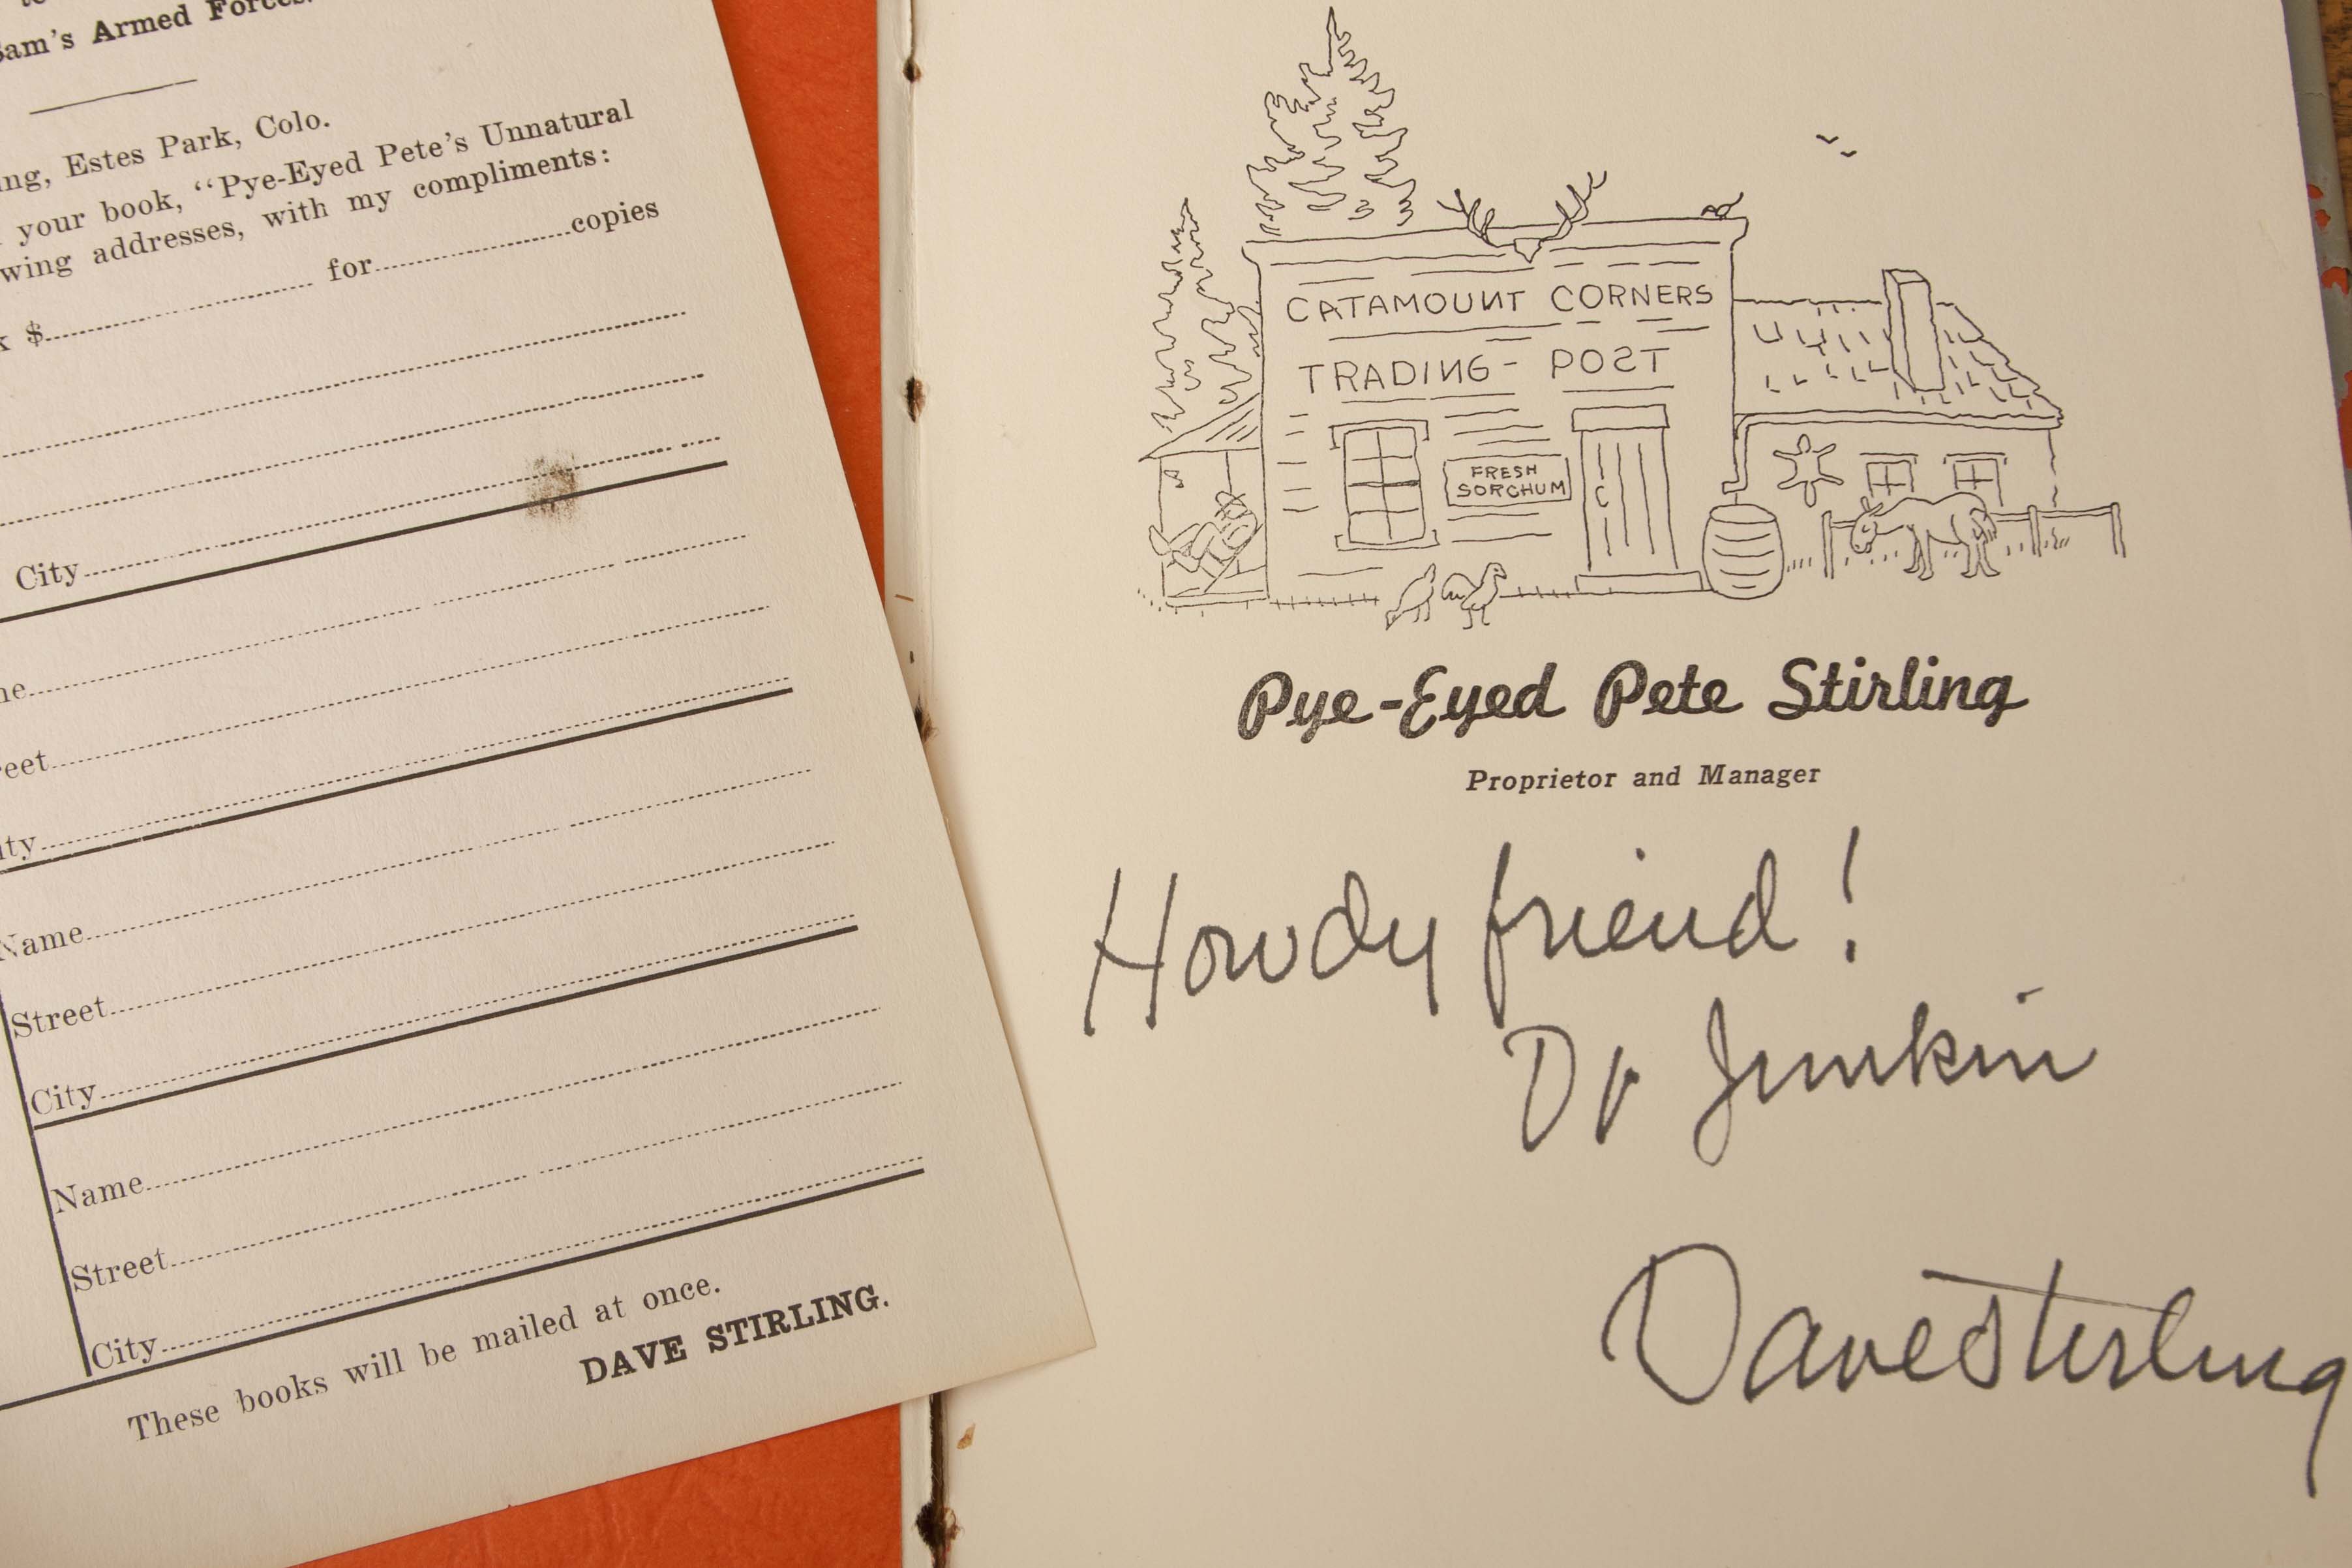 to
Sam's Armed Forces.
ing, Estes Park, Colo.
your book, “Pye-Eyed Pete's Unnatural
wing addresses, with my compliments:
k $ for copies
City
ne
reet
ity
Name
Street
City
Name
Street
City
These books will be mailed at once.
DAVE STIRLING.
CATAMOUNT CORNERS
TRADING - POST
FRESH
SORGHUM
Pye-Eyed Pete Stirling
Proprietor and Manager
Howdy friend!
Dr Junkin
Dave Stirling